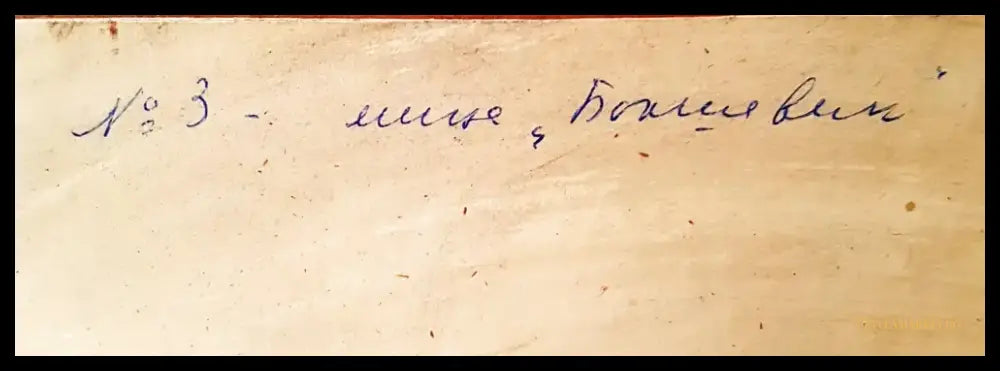 № 3 - мина „Болшевик“